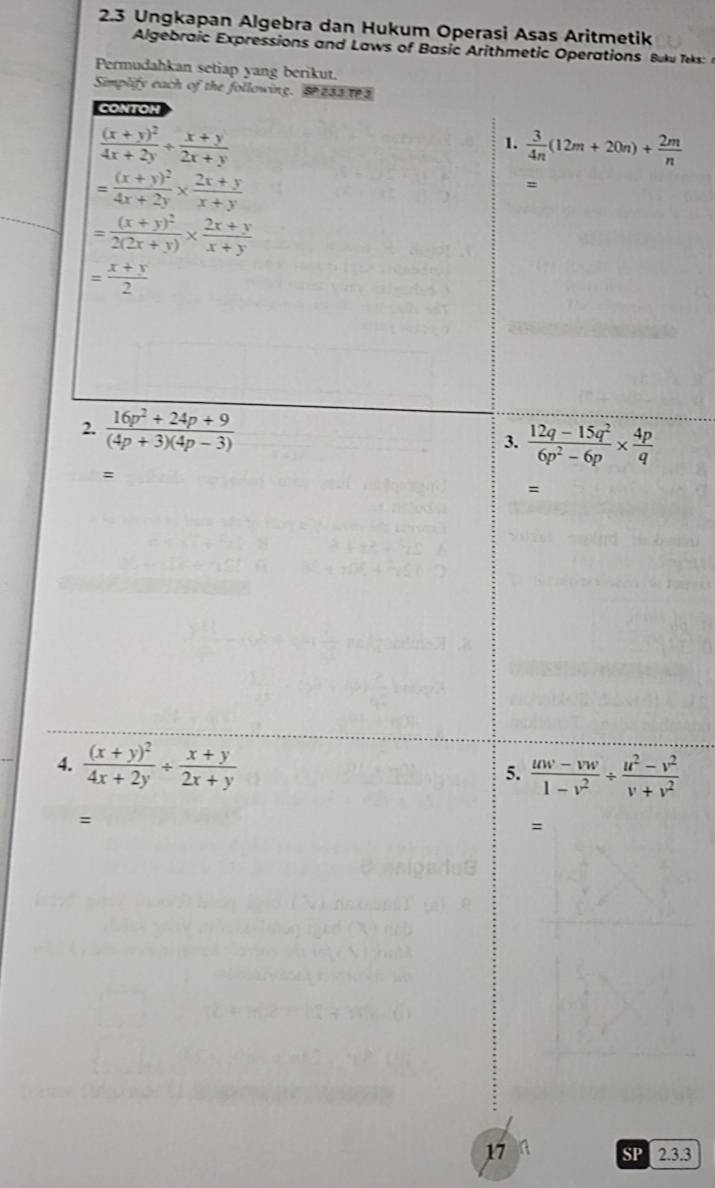 2.3 Ungkapan Algebra dan Hukum Operasi Asas Aritmetik
Algebraic Expressions and Laws of Basic Arithmetic Operations Buku Teks:
Permudahkan setiap yang berikut.
Simplify each of the following. SP 2.3.3 TP 3
CONTOH
\frac{(x + y)^2}{4x + 2y} ÷ \frac{x + y}{2x + y}
= \frac{(x + y)^2}{4x + 2y} × \frac{2x + y}{x + y}
= \frac{(x + y)^2}{2(2x + y)} × \frac{2x + y}{x + y}
= \frac{x + y}{2}
1. \frac{3}{4n}(12m + 20n) + \frac{2m}{n}
=
2. \frac{16p^2 + 24p + 9}{(4p + 3)(4p − 3)}
=
3. \frac{12q − 15q^2}{6p^2 − 6p} × \frac{4p}{q}
=
4. \frac{(x + y)^2}{4x + 2y} ÷ \frac{x + y}{2x + y}
=
5. \frac{uw − vw}{1 − v^2} ÷ \frac{u^2 − v^2}{v + v^2}
=
17
SP 2.3.3